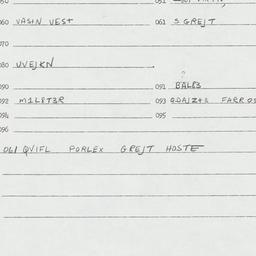 060 VASIN VEST 061 S GREJT
070
080 UVEJKN
090 091 BALES
092 M1LRT3R 093 FARROS
094 095
096
OLI QVIFL PORLEX GREJT HOSTE